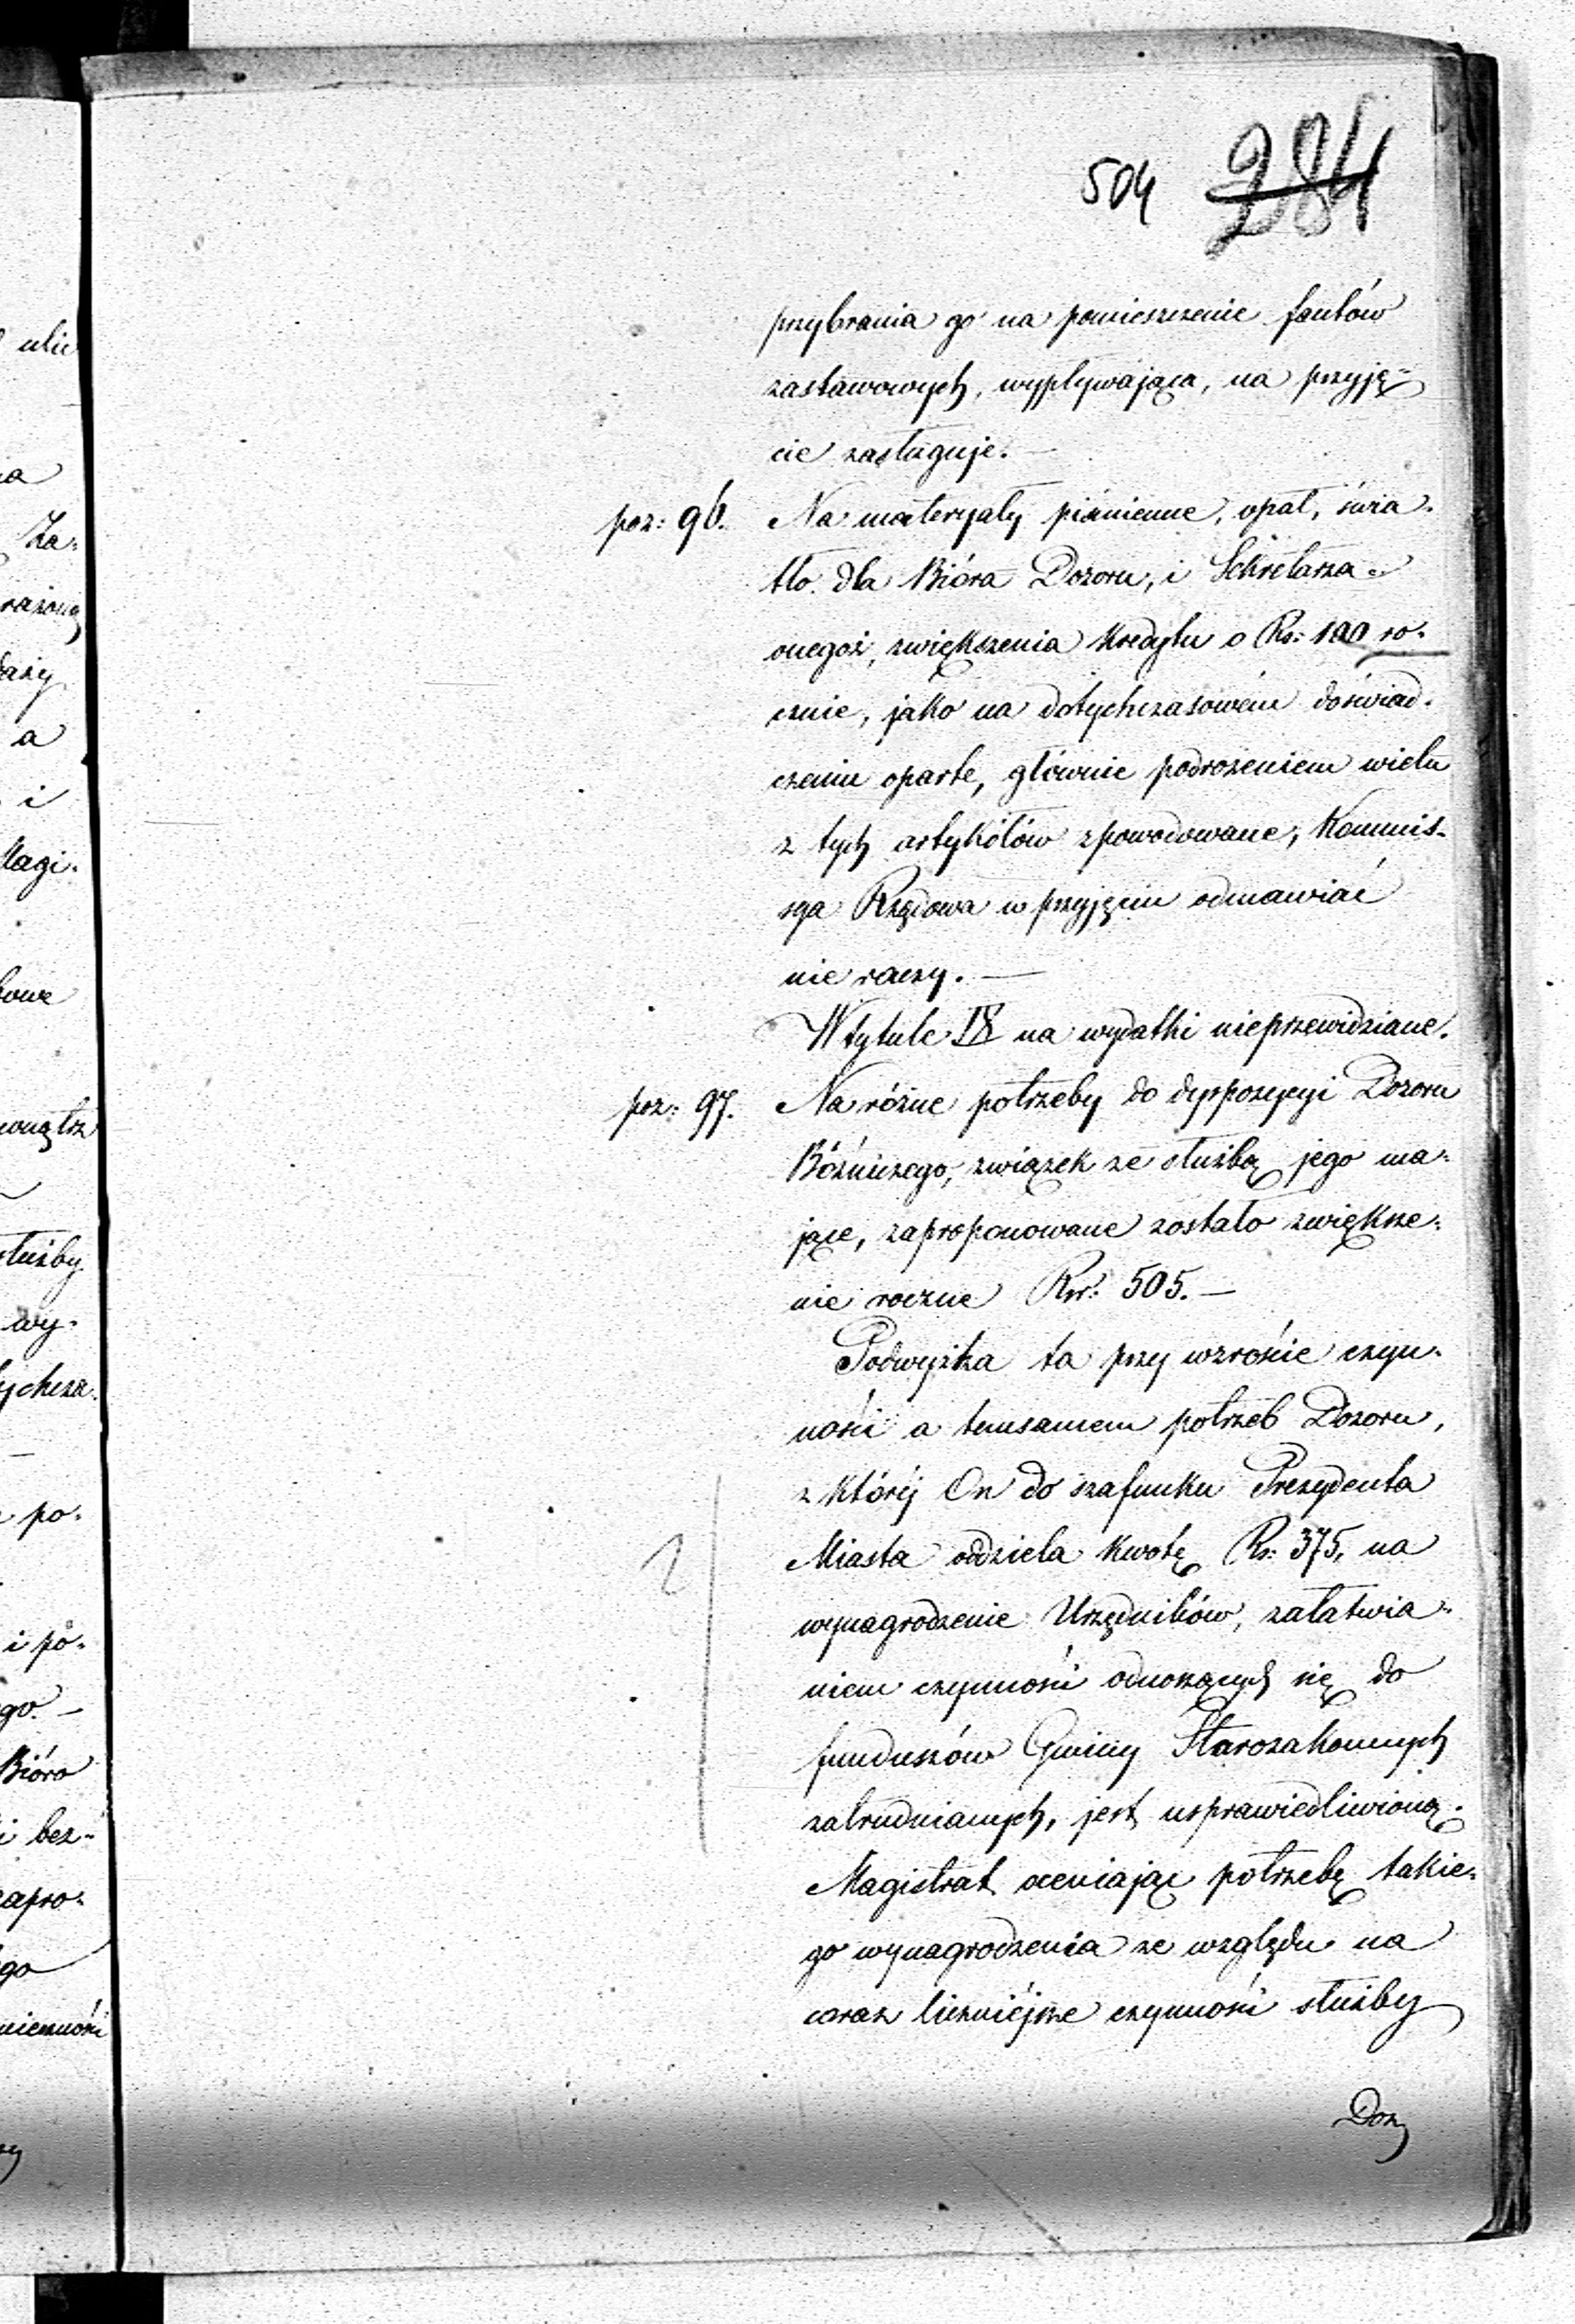 504 284
przybrania go na pomieszczenie fantów
zastawowych, wypływająca, na przyję=
cie zasługuje. —
poz: 96. Na materyały piśmienne, opał, świa=
tło dla Bióra Dozoru, i Sekretarza
onegoż, zwiększenia kredytu o Rs: 100 ro=
cznie, jako na dotychczasowém doświad=
czeniu oparte, głównie podrożeniem wielu
z tych artykółów spowodowane, Kommis=
sya Rządowa w przyjęciu odmawiać
nie raczy. —
W tytule IX na wydatki nieprzewidziane.
poz: 97. Na różne potrzeby do dyspozycyi Dozoru
Bóżniczego, związek ze służbą jego ma=
jące, zaproponowane zostało zwiększe=
nie roczne Rsr: 505. —
Podwyżka ta przy wzroście czyn=
ności a temsamem potrzeb Dozoru,
z któréj On do szafunku Prezydenta
Miasta oddziela kwotę Rs: 375, na
wynagrodzenie Urzędników, załatwia=
niem czynności odnoszących się do
funduszów Gminy Starozakonnych
zatrudnianych, jest usprawiedliwioną.
Magistrat oceniając potrzebę takie=
go wynagrodzenia ze względu na
coraz liczniéjsze czynności służby
Doz
ulic
na
Za=
a
i
Magi=
służby
wy=
po=
i po=
go. —
Bióro
i bez=
zapro=
go